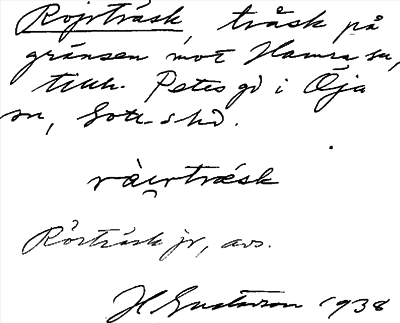 Rojrträsk, träsk på
gränsen mot Hamra sn,
tillh. Petes gd i Öja
sn, Gotl-s hd.
ràirträsk
Rörträsk jr, avs.
H Gustavson 1938